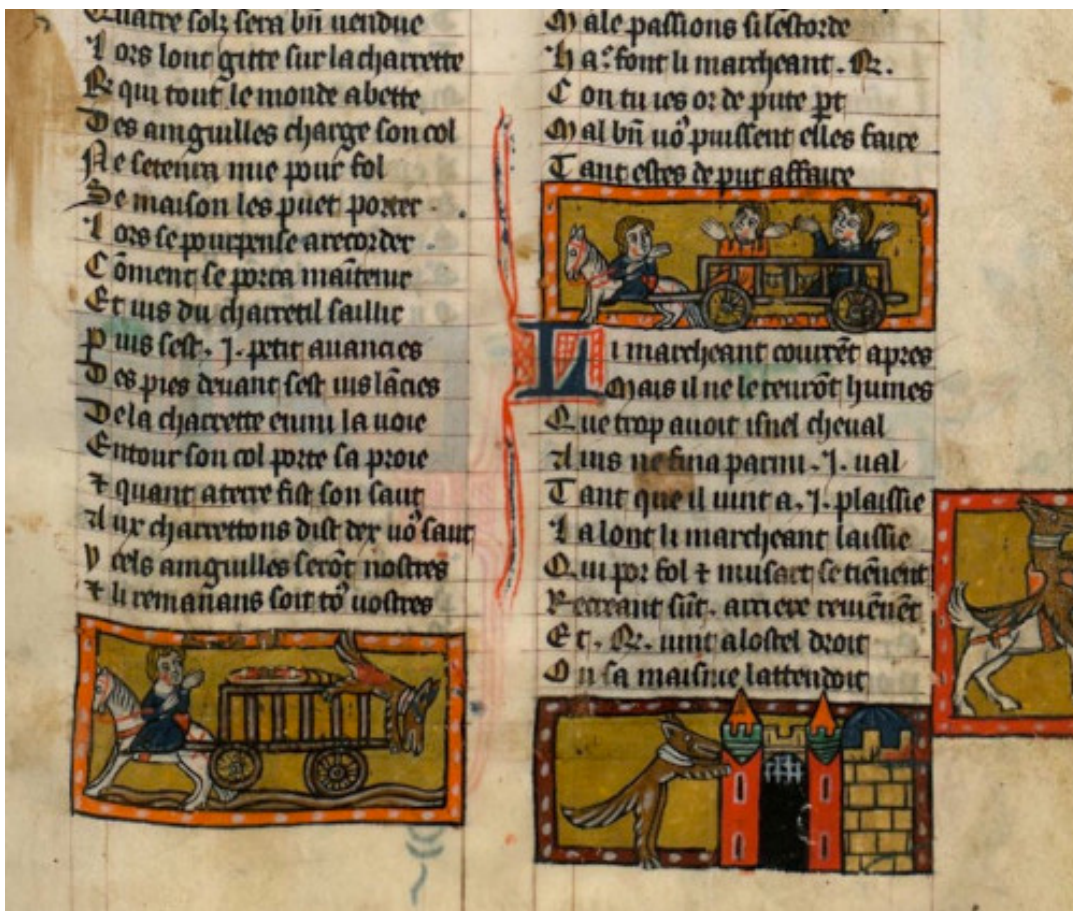 Quatre solz sera bñ uendue
Lors lont gitte sur la charrette
R qui tout le monde abette
Des amguilles charge son col
Ne se tenra mie pour fol
Se maison les puet porter
Lors se pourpense a recorder
Cõment se porra maĩtenir
Et ius du charretil saillir
Puis sest .j. petit auancies
Des pies deuant sest ius lãcies
De la charrette enmi la uoie
Entour son col porte sa proie
⁊ quant a terre fist son saut
Aux charrettons dist dex uoꝰ saut
Y cels amguilles serõt nostres
⁊ li remañans soit toꝰ uostres
Male passions si lestorde
Ha font li marcheant .R.
Con tu ies or de pute pt
Mal bñ uoꝰ puissent elles faire
Tant estes de put affaire
Li marcheant courẽt apres
Mais il ne le tenrõt humes
Que trop auoit isnel cheual
Ains ne fina parmi .j. ual
Tant que il uint a .j. plaissie
La lont li marcheant laissie
Qui por fol ⁊ musart se tiẽnent
Recreant sũt. arriere reuiẽnẽt
Et .R. uint a lostel droit
On sa maisnie lattendoit